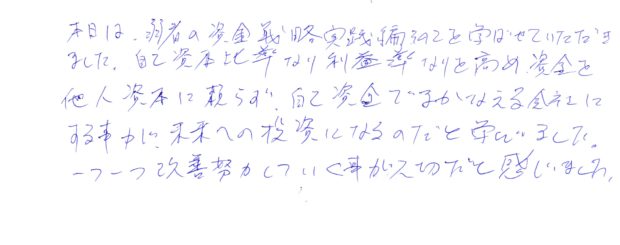 本日は、弱者の資金戦略実践編その2を学ばせていただき
ました。自己資本比率なり利益率なりを高め、資金を
他人資本に頼らず、自己資金でまかなえる会社に
する事が、未来への投資になるのだと学びました。
一つ一つ改善努力していく事が大切だと感じました。